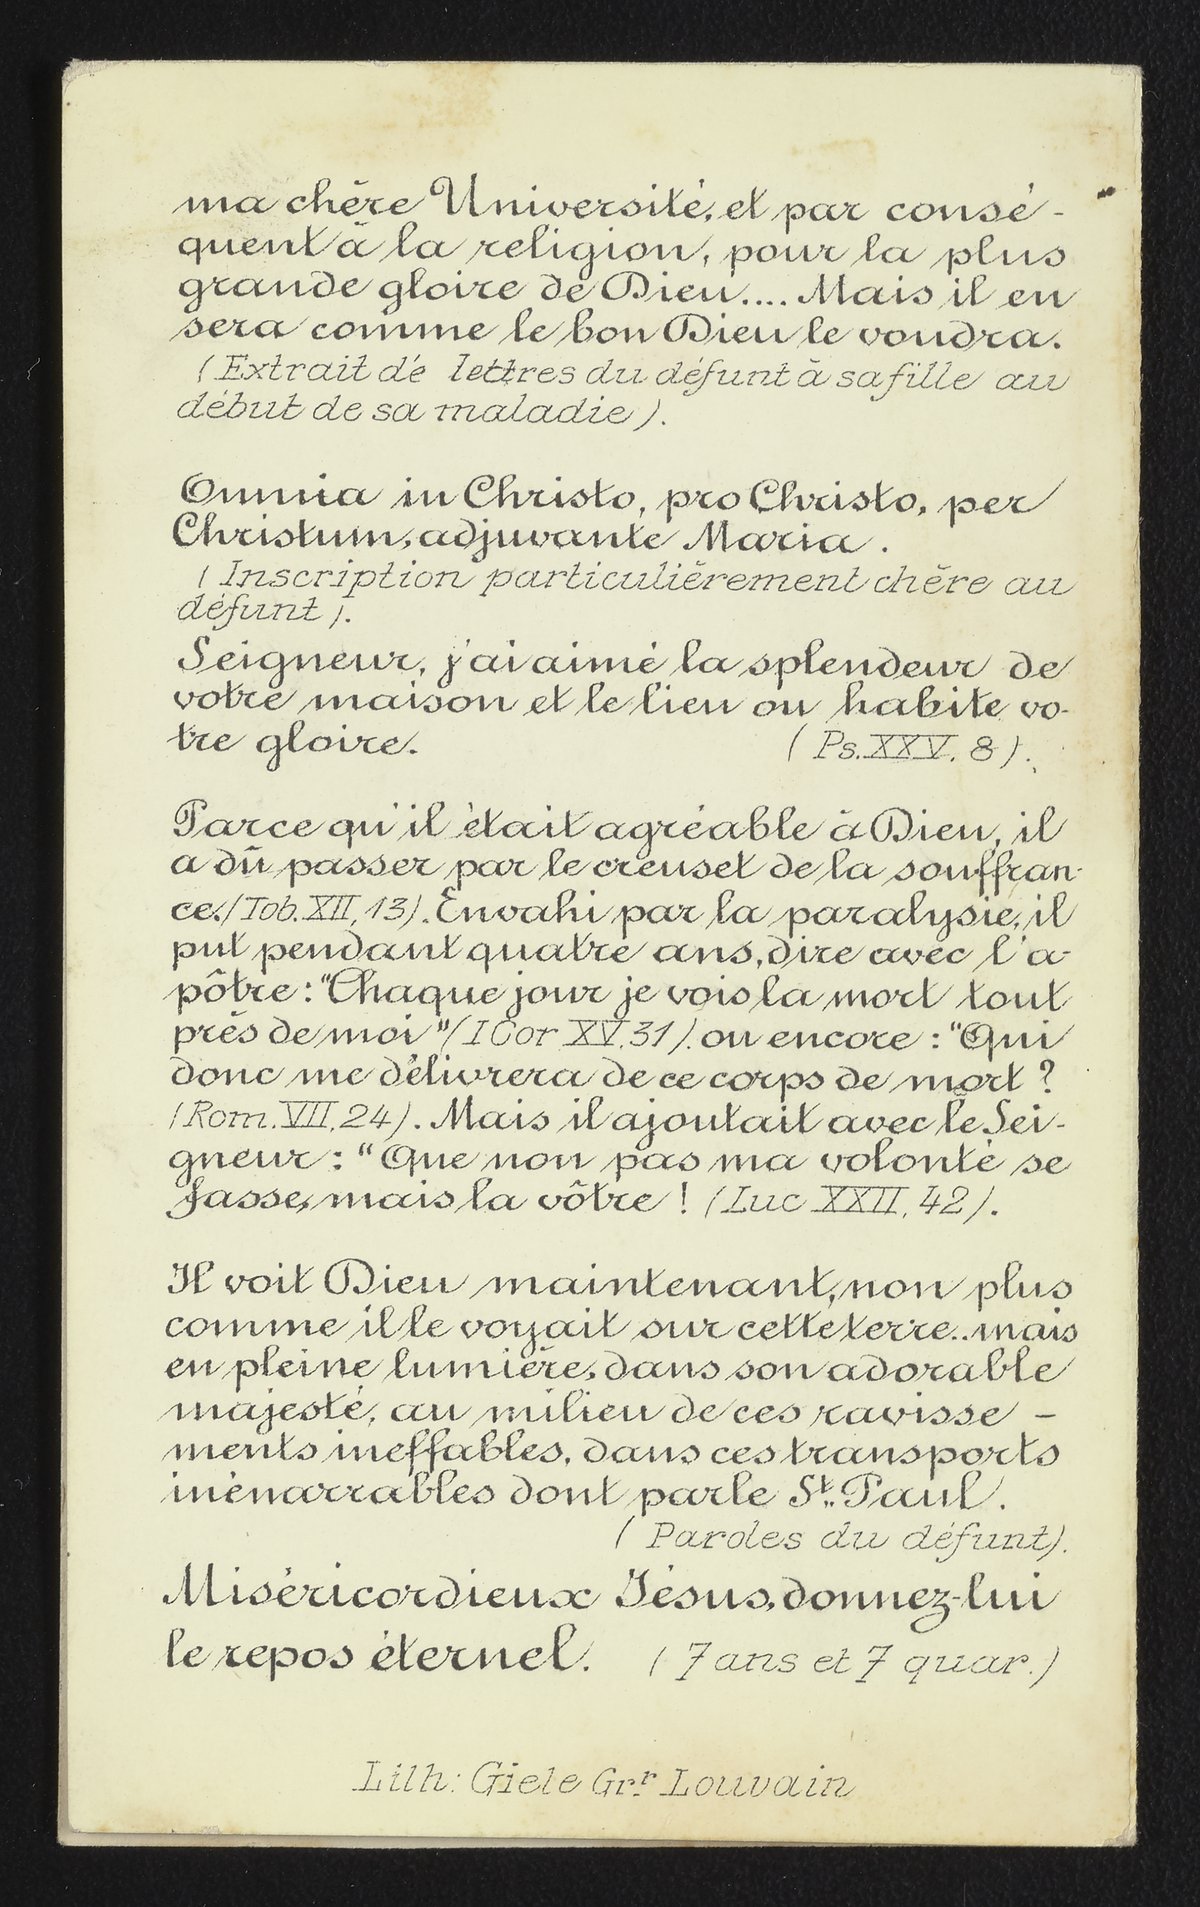 ma chère Université, et par consé-
quent à la religion, pour la plus
grande gloire de Dieu.... Mais il en
sera comme le bon Dieu le voudra.
(Extrait de lettres du défunt à sa fille au
début de sa maladie).
Omnia in Christo, pro Christo, per
Christum, adjuvante Maria.
(Inscription particulièrement chère au
défunt).
Seigneur, j'ai aimé la splendeur de
votre maison et le lieu ou habite vo-
tre gloire. (Ps. XXV. 8).
Parce qu'il était agréable à Dieu, il
a dû passer par le creuset de la souffran-
ce. (Tob. XII, 13). Envahi par la paralysie, il
put pendant quatre ans, dire avec l'a-
pôtre: "Chaque jour je vois la mort tout
près de moi" (I Cor XV. 31). ou encore: "Qui
donc me délivrera de ce corps de mort?
(Rom. VII. 24). Mais il ajoutait avec le Sei-
gneur: "Que non pas ma volonté se
fasse, mais la vôtre! (Luc XXII, 42).
Il voit Dieu maintenant, non plus
comme il le voyait sur cette terre.. mais
en pleine lumière, dans son adorable
majesté, au milieu de ces ravisse-
ments ineffables, dans ces transports
inénarrables dont parle St. Paul.
(Paroles du défunt).
Miséricordieux Jésus, donnez-lui
le repos éternel. (7 ans et 7 quar.)
Lith: Giele Grr Louvain